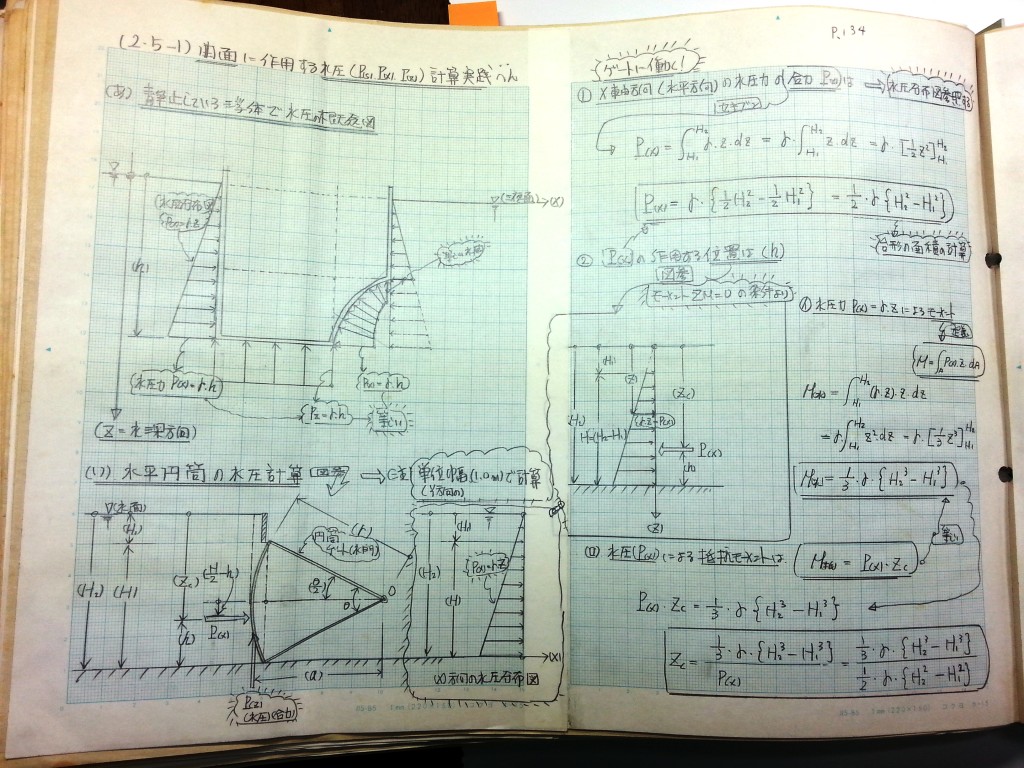 P.134
(2・5-1) 曲面に作用する水圧(P(s), P(x), P(z)) 計算実践へん
(あ) 静止している
水圧分布図
P(x)=γ・Z
(h)
(二次面)
(X)
水圧力 P(x)=γ・h
P(x)=γ・h
P(z)=γ・h
等しい
(Z=水深方向)
(い) 水平円筒の水圧計算 図参
単位巾(1.0m)で計算
(水面)
(H₁)
(H₂)
(H)
(Zc)
(H/2-h)
(h)
P(x)
円筒
(r)
(θ/2)
θ
O
(a)
P(z)
(水圧合力)
(H₁)
(H₂)
(H)
P(x)=γ・Z
(X)
(X)方向の水圧分布図
ゲートに働く!
① X軸方向(水平方向)の水圧力の合力 P(x)は
水圧分布図参照する
P(x) = ∫H₁H₂ γ・z・dz = γ・∫H₁H₂ z・dz = γ・[½z²]H₁H₂
P(x) = γ・{½H₂²-½H₁²} = ½・γ{H₂²-H₁²}
台形の面積の計算
② P(x)の作用する位置は(h)
図参
モーメントΣM=0の条件より
(H₁)
(H₂)
(Z)
H=(H₂-H₁)
γ・Z=P(x)
(Zc)
P(x)
(h)
(Z)
(イ) 水圧力 P(x)=γ・Z によるモーメント
M=∫A P(x)・z・dA
M(x) = ∫H₁H₂ (γ・z)・z・dz
= γ∫H₁H₂ z²・dz = γ・[⅓z³]H₁H₂
M(x) = ⅓・γ・{H₂³-H₁³}
等しい
(ロ) 水圧(P(x))による抵抗モーメントは
M(x) = P(x)・Zc
P(x)・Zc = ⅓・γ{H₂³-H₁³}
Zc = ⅓・γ・{H₂³-H₁³} / P(x) = ⅓・γ・{H₂³-H₁³} / ½・γ・{H₂²-H₁²}